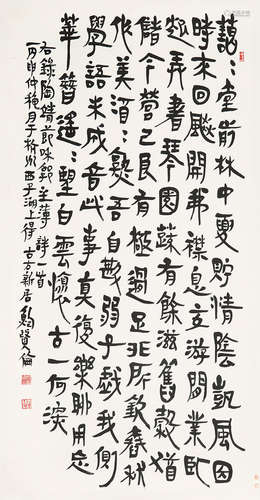 藹〻堂前林中夏貯清陰凱風因
時來回飇開我襟息交遊閒業臥
起弄書琴園蔬有餘滋舊穀猶
儲今營己良有極過足非所欽舂秫
作美酒〻熟吾自斟弱子戲我側
學語未成音此事真復樂聊用忘
華簪遙〻望白雲懷古一何深
右錄陶靖節和郭主薄詩一首
丙申仲穐月于杭州西子湖上得古方新居鮑賢倫